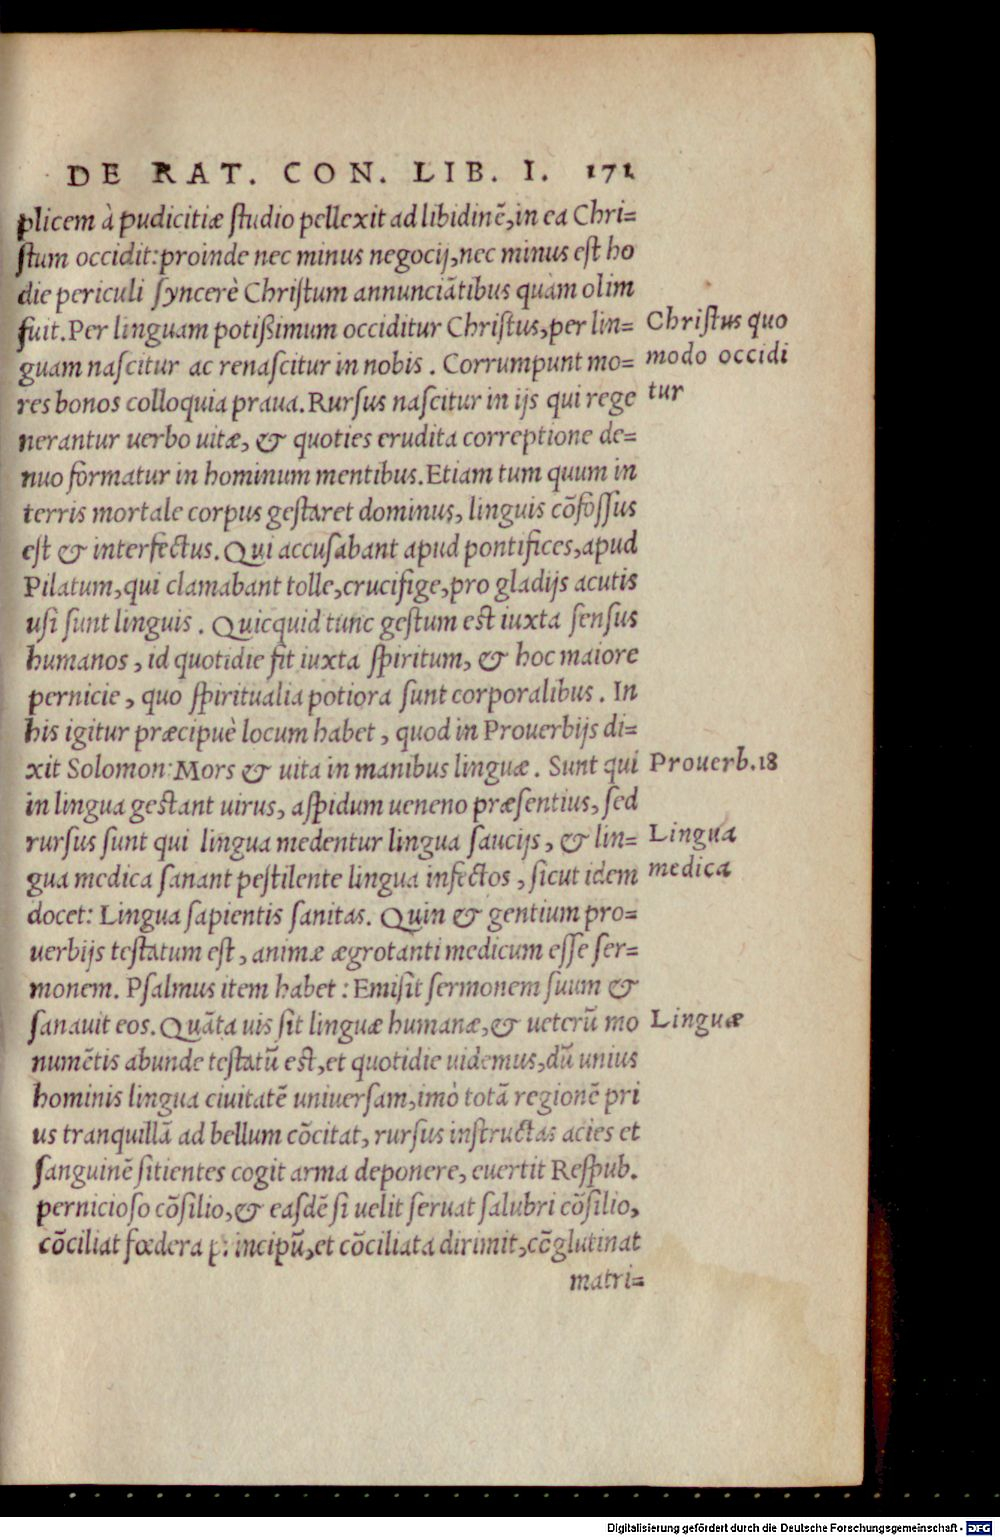 DE RAT. CON. LIB. I. 171
plicem à pudicitiæ ſtudio pellexit ad libidinē, in ea Chri=
ſtum occidit: proinde nec minus negocij, nec minus eſt ho
die periculi ſyncerè Chriſtum annunciātibus quàm olim
fuit. Per linguam potißimum occiditur Chriſtus, per lin=
guam naſcitur ac renaſcitur in nobis. Corrumpunt mo=
res bonos colloquia praua. Rurſus naſcitur in ijs qui rege
nerantur uerbo uitæ, & quoties erudita correptione de=
nuo formatur in hominum mentibus. Etiam tum quum in
terris mortale corpus geſtaret dominus, linguis cōfoſſus
eſt & interfectus. Qui accuſabant apud pontifices, apud
Pilatum, qui clamabant tolle, crucifige, pro gladijs acutis
uſi ſunt linguis. Quicquid tunc geſtum eſt iuxta ſenſus
humanos, id quotidie fit iuxta ſpiritum, & hoc maiore
pernicie, quo ſpiritualia potiora ſunt corporalibus. In
his igitur præcipuè locum habet, quod in Prouerbijs di=
xit Solomon: Mors & uita in manibus linguæ. Sunt qui
in lingua geſtant uirus, aſpidum ueneno præſentius, ſed
rurſus ſunt qui lingua medentur lingua ſaucijs, & lin=
gua medica ſanant peſtilente lingua infectos, ſicut idem
docet: Lingua ſapientis ſanitas. Quin & gentium pro=
uerbijs teſtatum eſt, animæ ægrotanti medicum eſſe ſer=
monem. Pſalmus item habet: Emiſit ſermonem ſuum &
ſanauit eos. Quāta uis ſit linguæ humanæ, & ueterū mo
numētis abunde teſtatū eſt, et quotidie uidemus, dū unius
hominis lingua ciuitatē uniuerſam, imò totā regionē pri
us tranquillā ad bellum cōcitat, rurſus inſtructas acies et
ſanguinē ſitientes cogit arma deponere, euertit Reſpub.
pernicioſo cōſilio, & eaſdē ſi uelit ſeruat ſalubri cōſilio,
cōciliat fœdera principū, et cōciliata dirimit, cōglutinat
matri=
Chriſtus quo
modo occidi
tur
Prouerb. 18
Lingua
medica
Linguæ
Digitalisierung gefördert durch die Deutsche Forschungsgemeinschaft - DFG